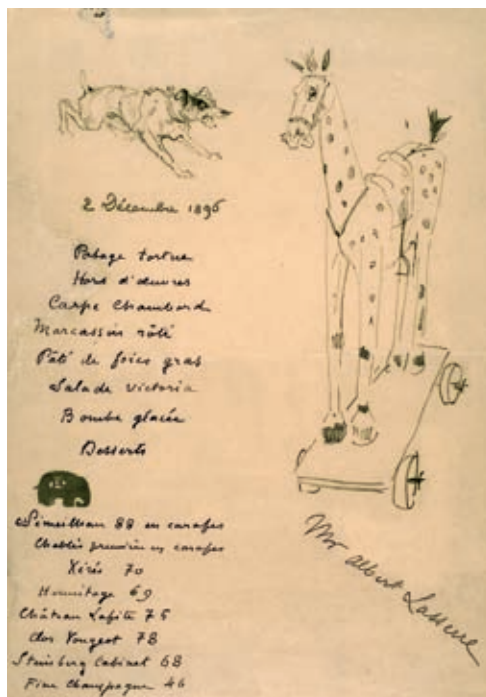 2 Décembre 1896
Potage tortue
Hors d'œuvres
Carpe Chambord
Marcassin rôti
Pâté de foies gras
Salade Victoria
Bombe glacée
Desserts
88 en carafes
Chablis première en carafes
Xérès 70
Hermitage 69
Château Lafite 75
Clos Vougeot 78
Steinberg Cabinet 68
Fine Champagne 46
Mr Albert